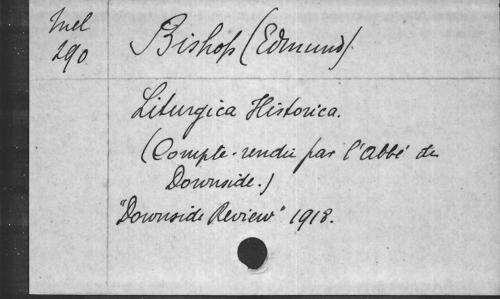 Mel
290
Bishop (Edmund).
Liturgica Historica.
(Compte-rendu par l'Abbé de
Downside.)
"Downside Review" 1918.